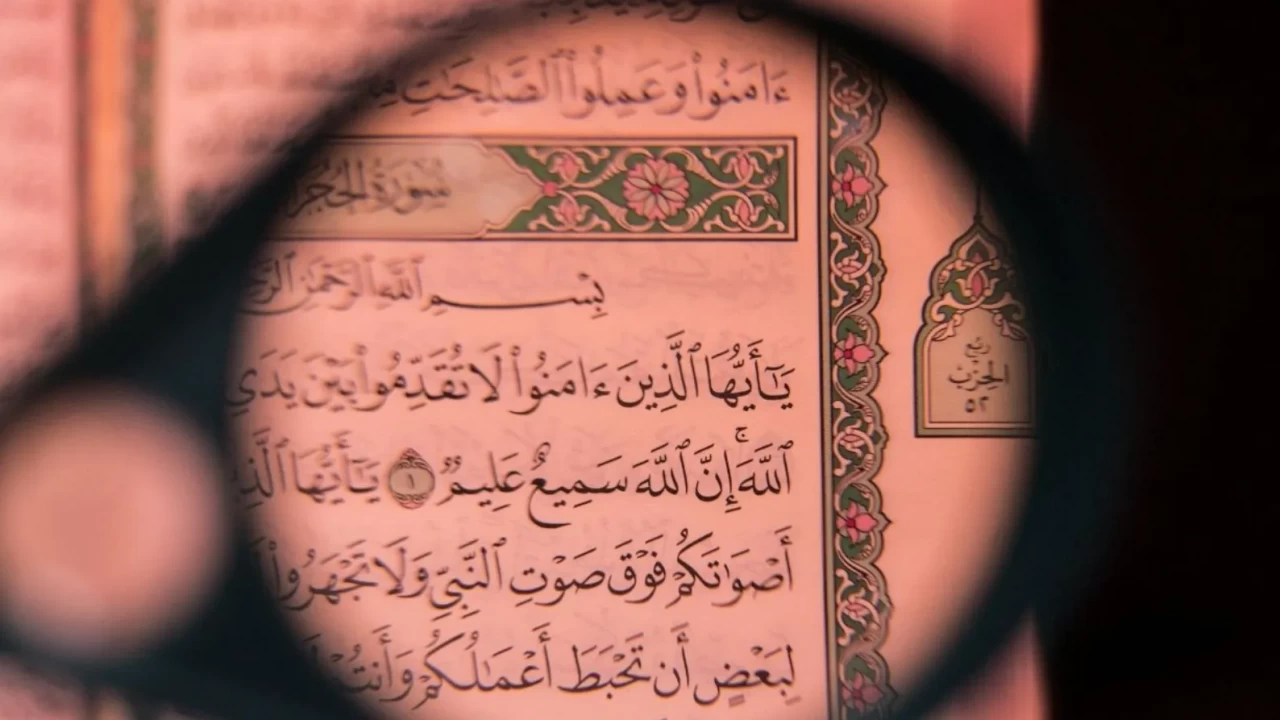 ءَامَنُوا۟ وَعَمِلُوا۟ ٱلصَّٰلِحَٰتِ
سُورَةُ الحُجُرَ
بِسْمِ ٱللَّهِ ٱلرَّحْمَٰنِ
يَٰٓأَيُّهَا ٱلَّذِينَ ءَامَنُوا۟ لَا تُقَدِّمُوا۟ بَيْنَ يَدَىِ
ٱللَّهَۚ إِنَّ ٱللَّهَ سَمِيعٌ عَلِيمٌ ١ يَٰٓأَيُّهَا
أَصْوَٰتَكُمْ فَوْقَ صَوْتِ ٱلنَّبِىِّ وَلَا تَجْهَرُوا۟
لِبَعْضٍ أَن تَحْبَطَ أَعْمَٰلُكُمْ
ربع
الحزب
٥٢